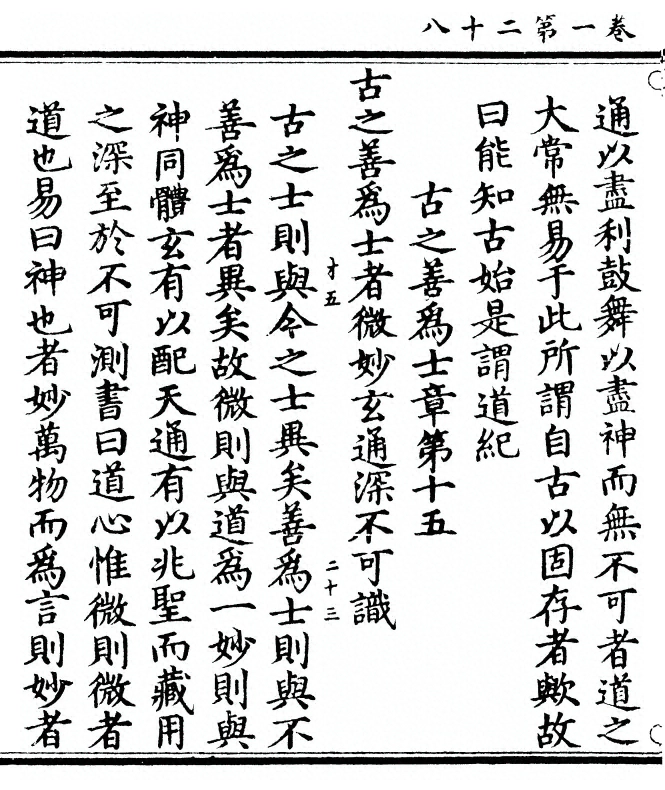 卷一第二十八
通以盡利鼓舞以盡神而無不可者道之
大常無易于此所謂自古以固存者歟故
曰能知古始是謂道紀
古之善爲士章第十五
古之善爲士者微妙玄通深不可識
才五
二十三
古之士則與今之士異矣善爲士則與不
善爲士者異矣故微則與道爲一妙則與
神同體玄有以配天通有以兆聖而藏用
之深至於不可測書曰道心惟微則微者
道也易曰神也者妙萬物而爲言則妙者